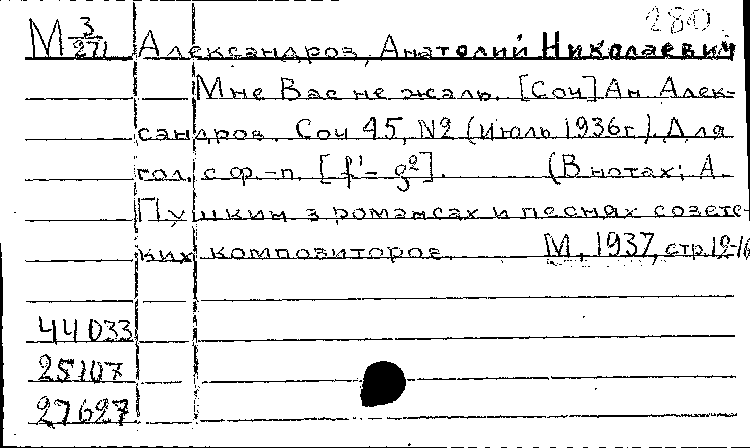 280
М 3/271 Александров, Анатолий Николаевич
Мне Вас не жаль. [Соч] Ан. Алек-
сандров. Соч 45, №2 (Июль 1936г). Для
гол. с ф.-п. [f¹-g²]. (В нотах: А.
Пушкин в романсах и песнях советс-
ких композиторов. М., 1937, стр. 12-16
44033
25107
27627